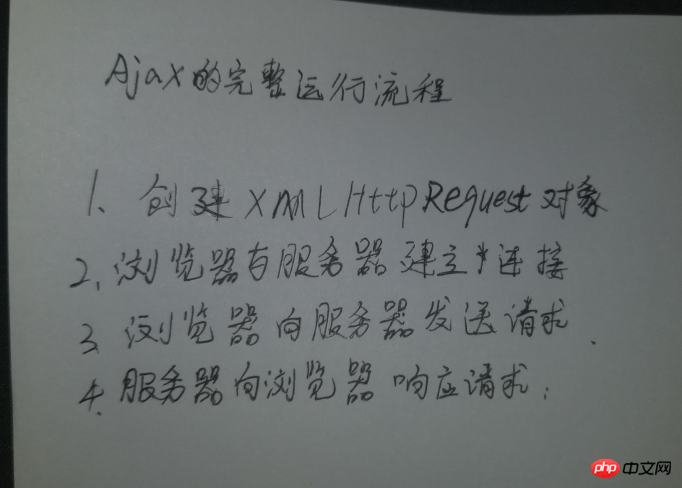 Ajax的完整运行流程
1、创建XMLHttpRequest对象
2、浏览器与服务器建立连接
3、浏览器向服务器发送请求.
4、服务器向浏览器响应请求;
php 中文网